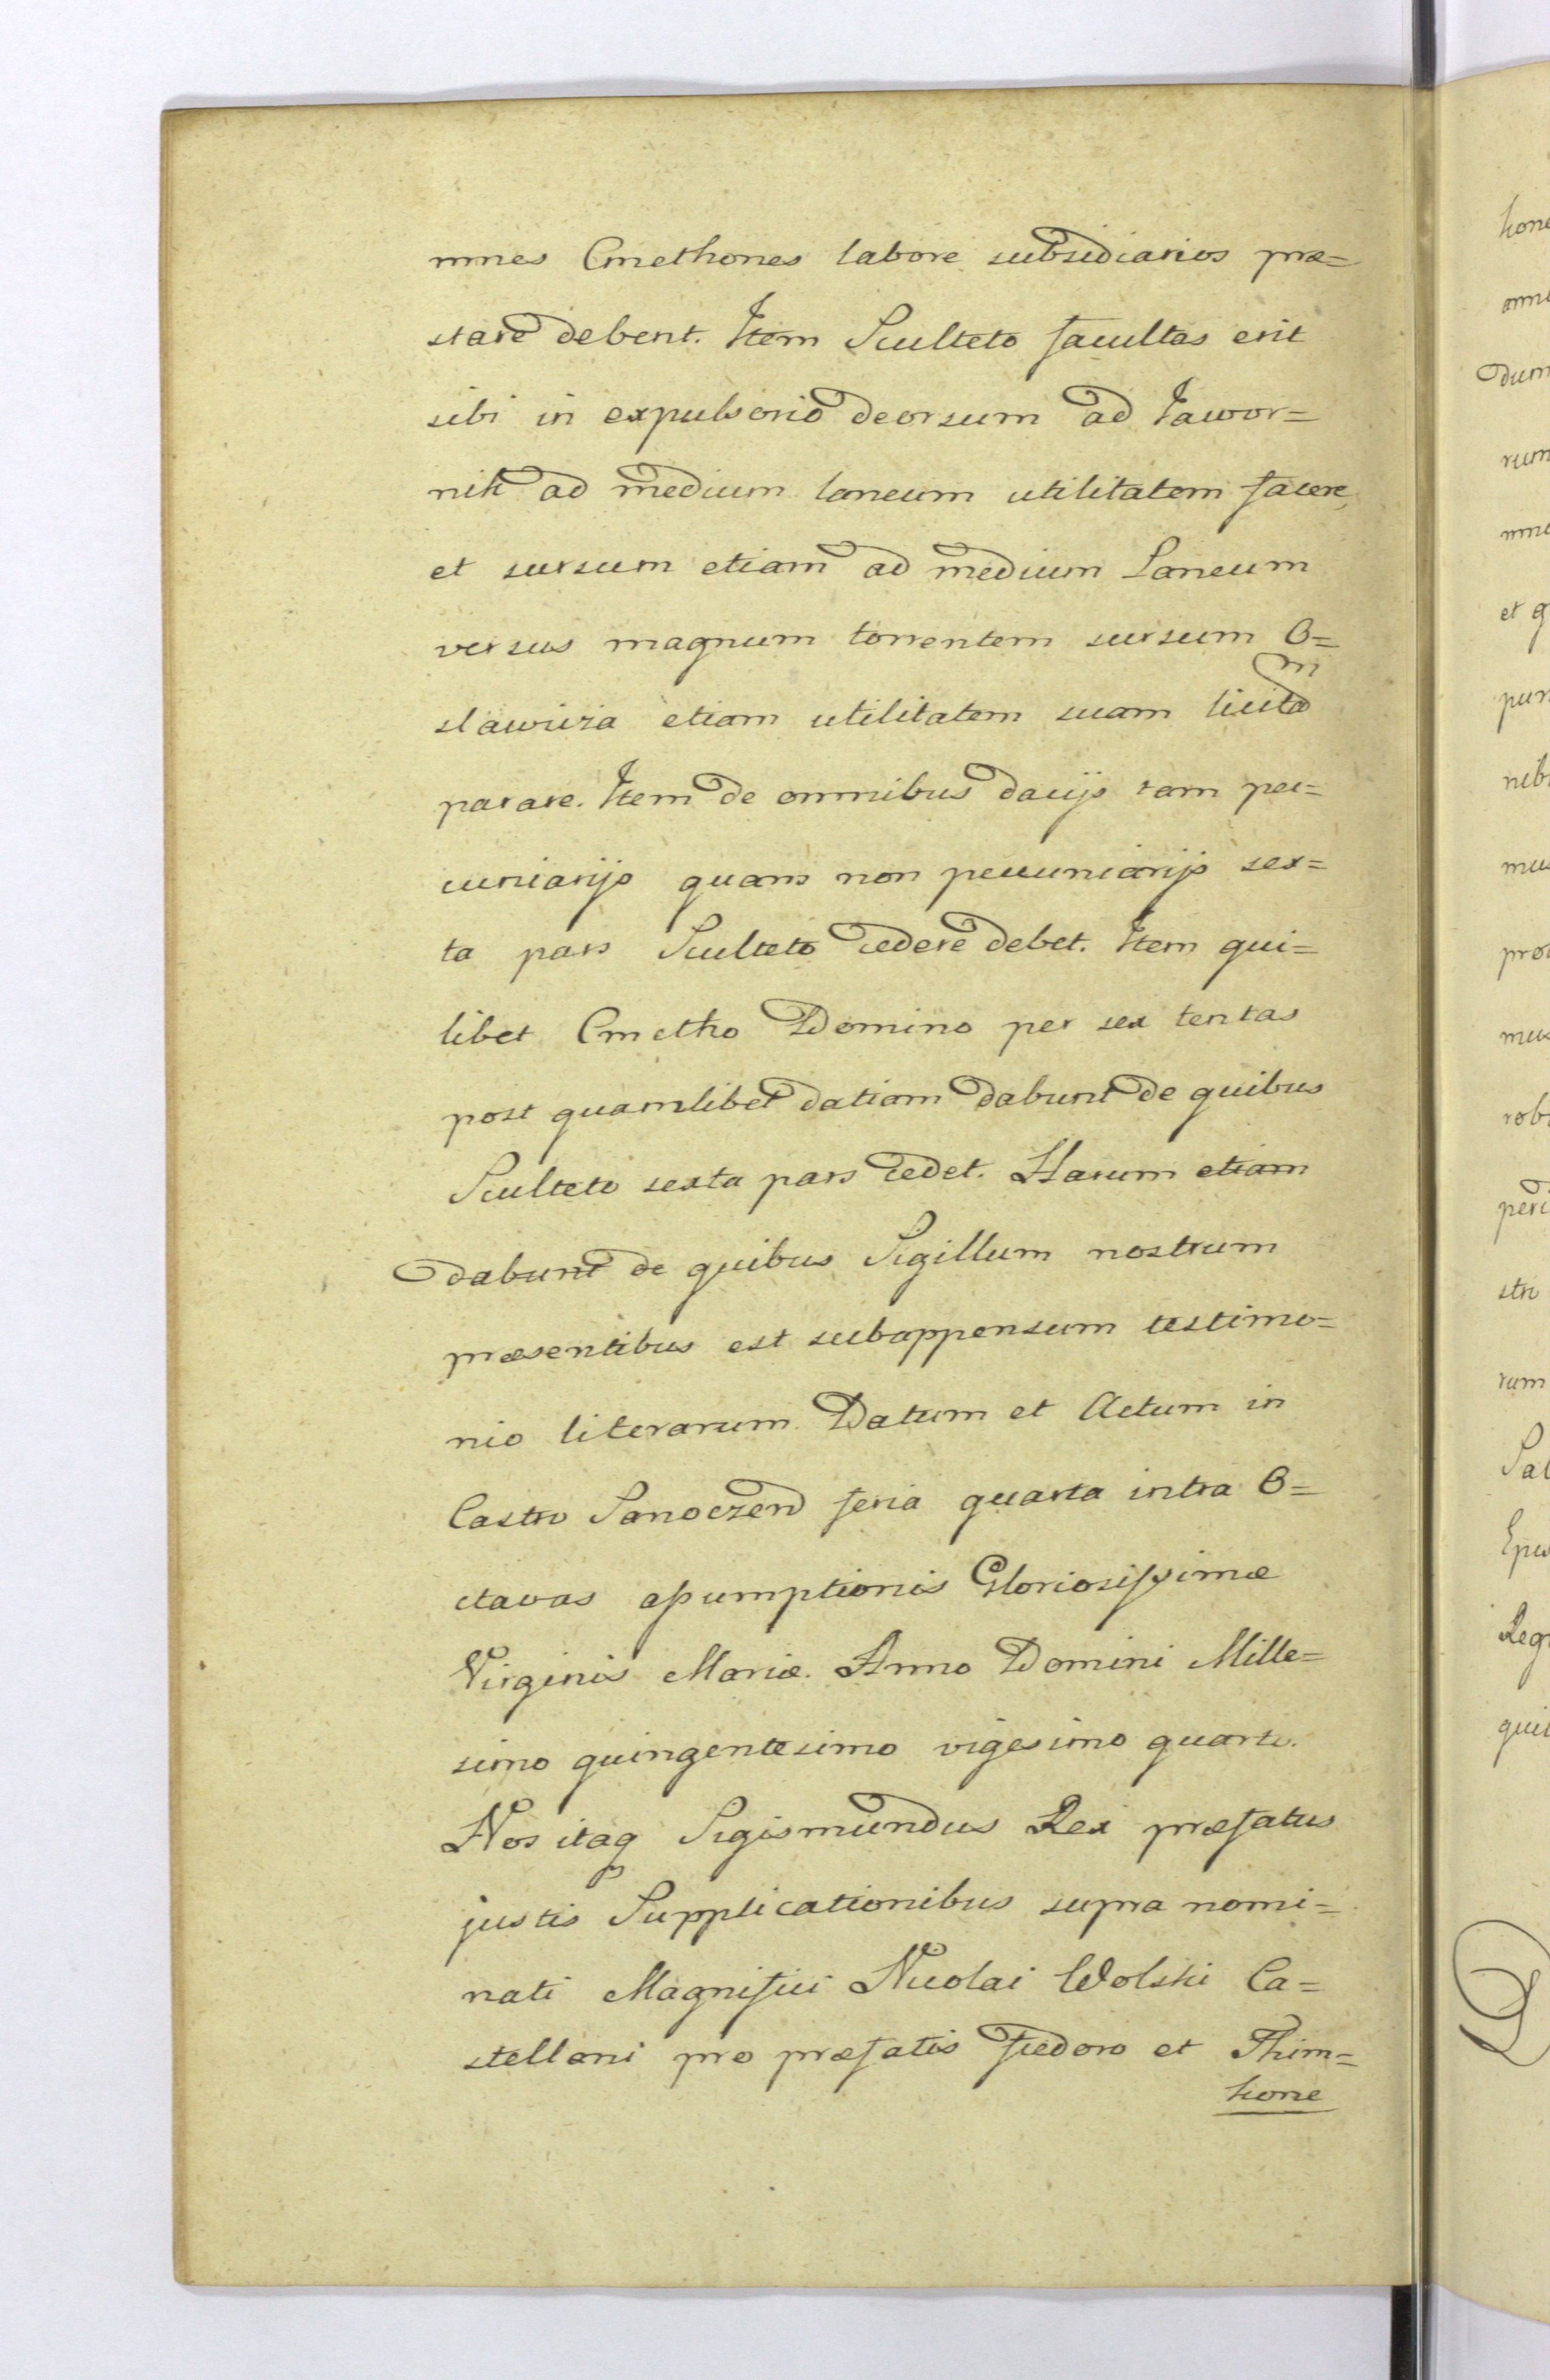 mnes Cmethones labore subsidiarios præ=
stare debent. Item Sculteto facultas erit
sibi in expulsorio deorsum ad Jawor=
nik ad medium laneum utilitatem facere,
et sursum etiam ad medium Laneum
versus magnum torrentem sursum O=
slawiza etiam utilitatem suam licitam
parare. Item de omnibus dacijs tam pec=
cuniarijs quam non peccuniarijs sex=
ta pars Sculteto cedere debet. Item qui=
libet Cmetho Domino per sex tentas
post quamlibet datiam dabunt de quibus
Sculteto sexta pars cedet. Harum etiam
dabunt de quibus Sigillum nostrum
præsentibus est subappensum testimo=
nio literarum. Datum et Actum in
Castro Sanoczen feria quarta intra O=
ctavas assumptionis Gloriosissimæ
Virginis Mariæ. Anno Domini Mille=
simo quingentesimo vigesimo quarto.
Nos itaq Sigismundus Rex præfatus
justis Supplicationibus supra nomi=
nati Magnifici Nicolai Wolski Ca=
stellani pro præfatis Fiedoro et Thim=
kone